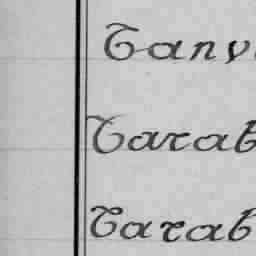 Tanv
Tarab
Tarab